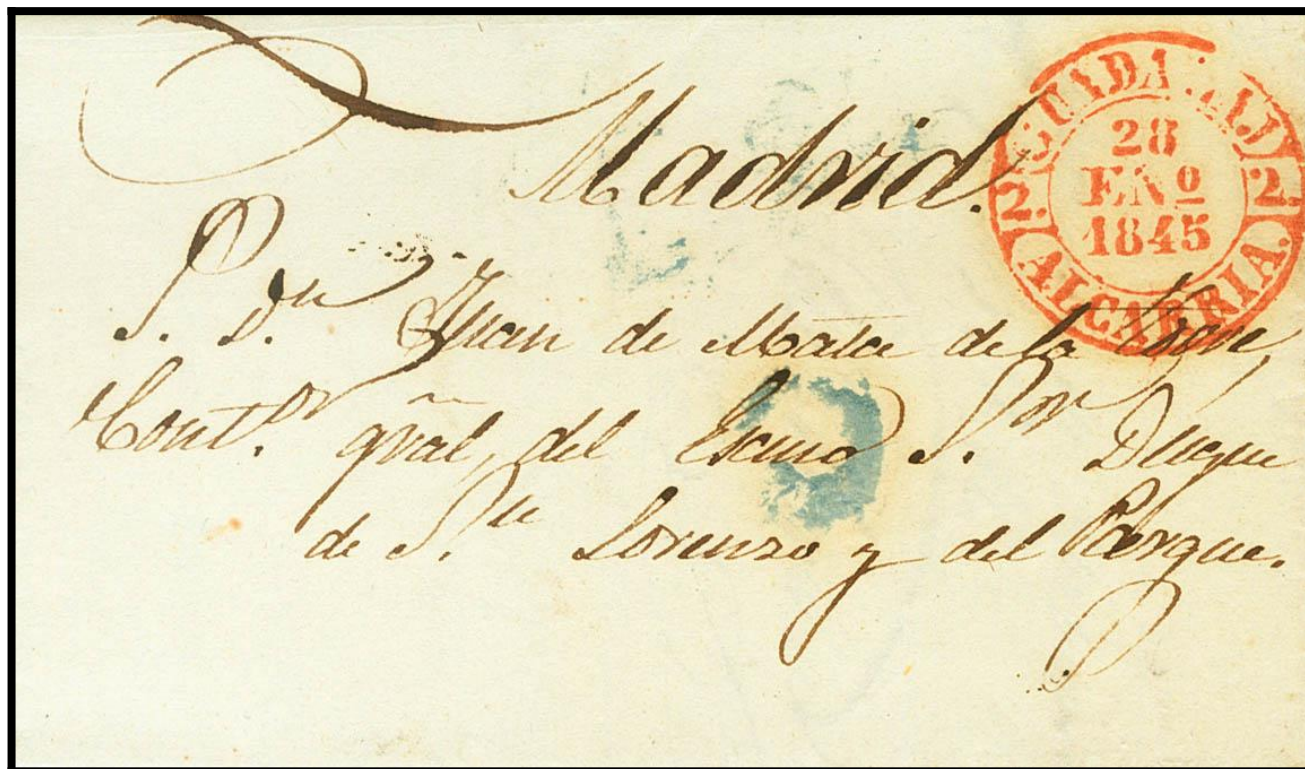 Madrid.
GUADALAJ
2 28 2
ENº
1845
ALCARRIA.
S. Dn Juan de Mata de la
Contor. gral, del Escmo Sor Duque
de Sn Lorenzo y del Parque.